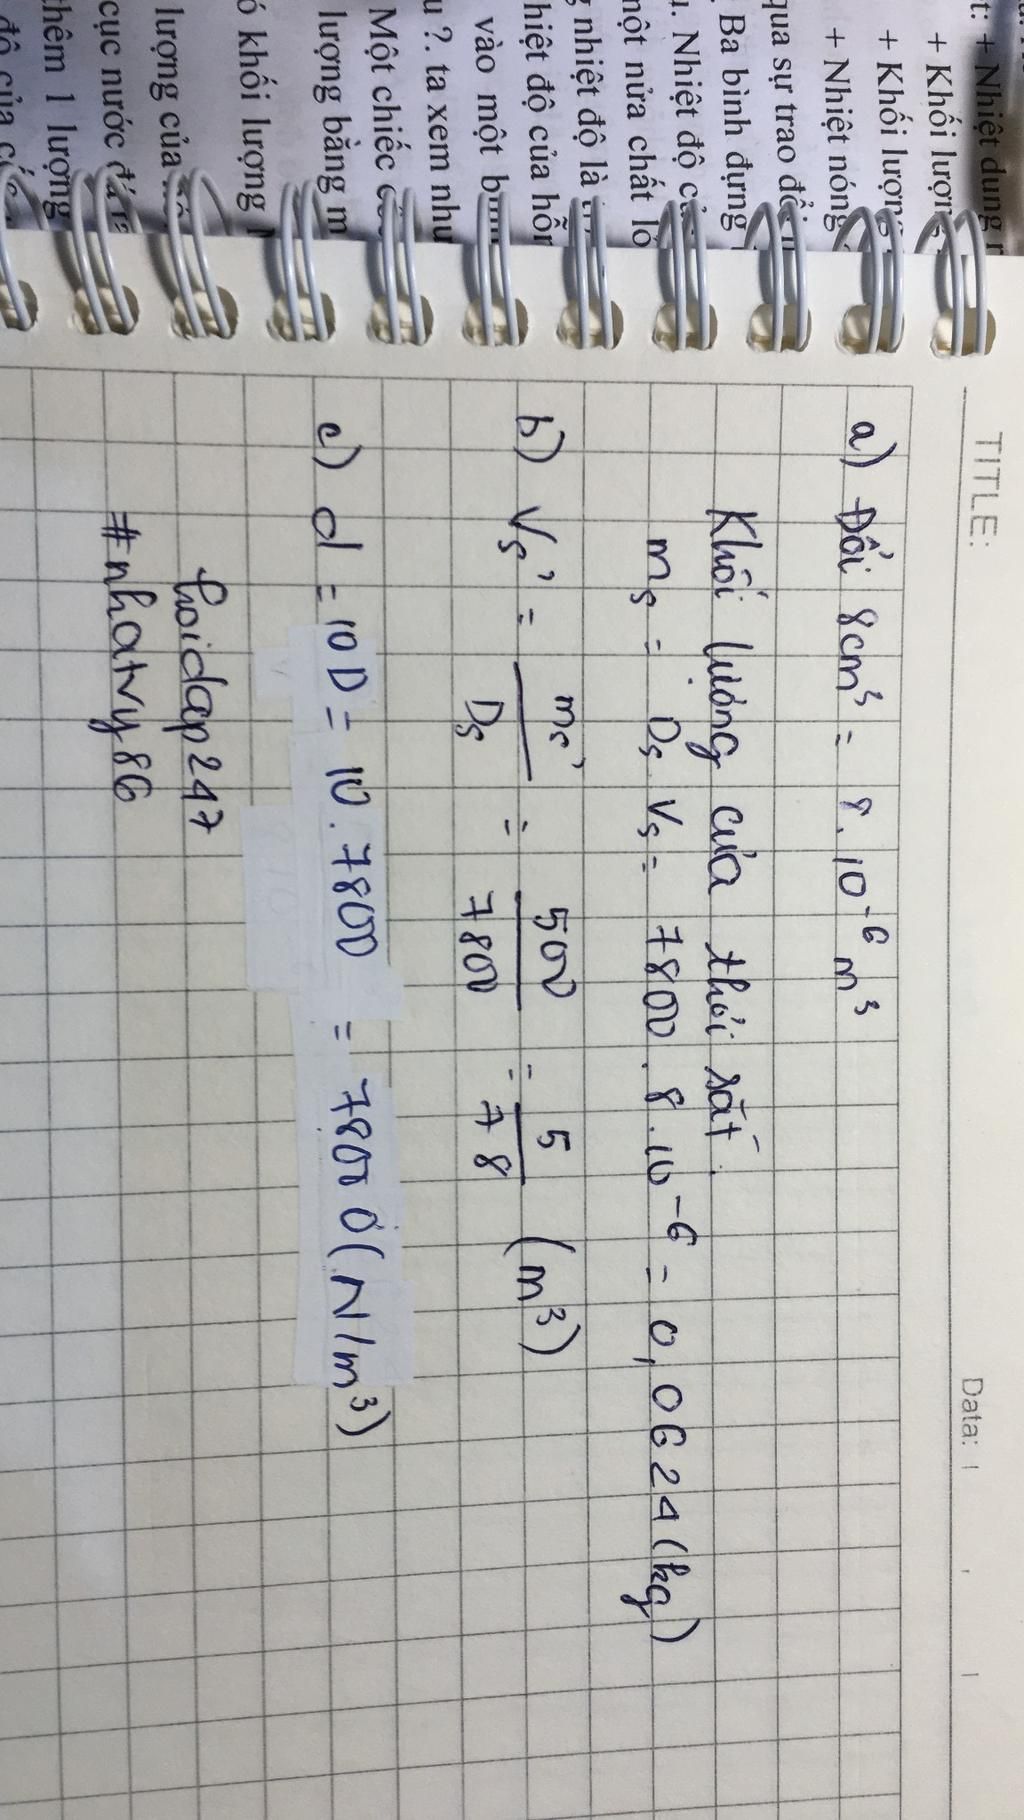 t: + Nhiệt dung
+ Khối lượng
+ Khối lượng
+ Nhiệt nóng
qua sự trao đổi
Ba bình đựng
. Nhiệt độ
một nửa chất lỏ
nhiệt độ là
hiệt độ của hỗn
vào một bình
u ?. ta xem như
Một chiếc
lượng bằng m
ó khối lượng
lượng của
cục nước đá
thêm 1 lượng
độ của
TITLE:
Data:
a) Đổi 8cm³ = 8.10⁻⁶ m³
Khối lượng của thỏi sắt.
mₛ = Dₛ.Vₛ = 7800.8.10⁻⁶ = 0,0624 (kg)
b) Vₛ' = mₛ'/Dₛ = 500/7800 = 5/78 (m³)
c) d = 10D = 10.7800 = 78000 (N/m³)
hoidap247
#nhatvy86